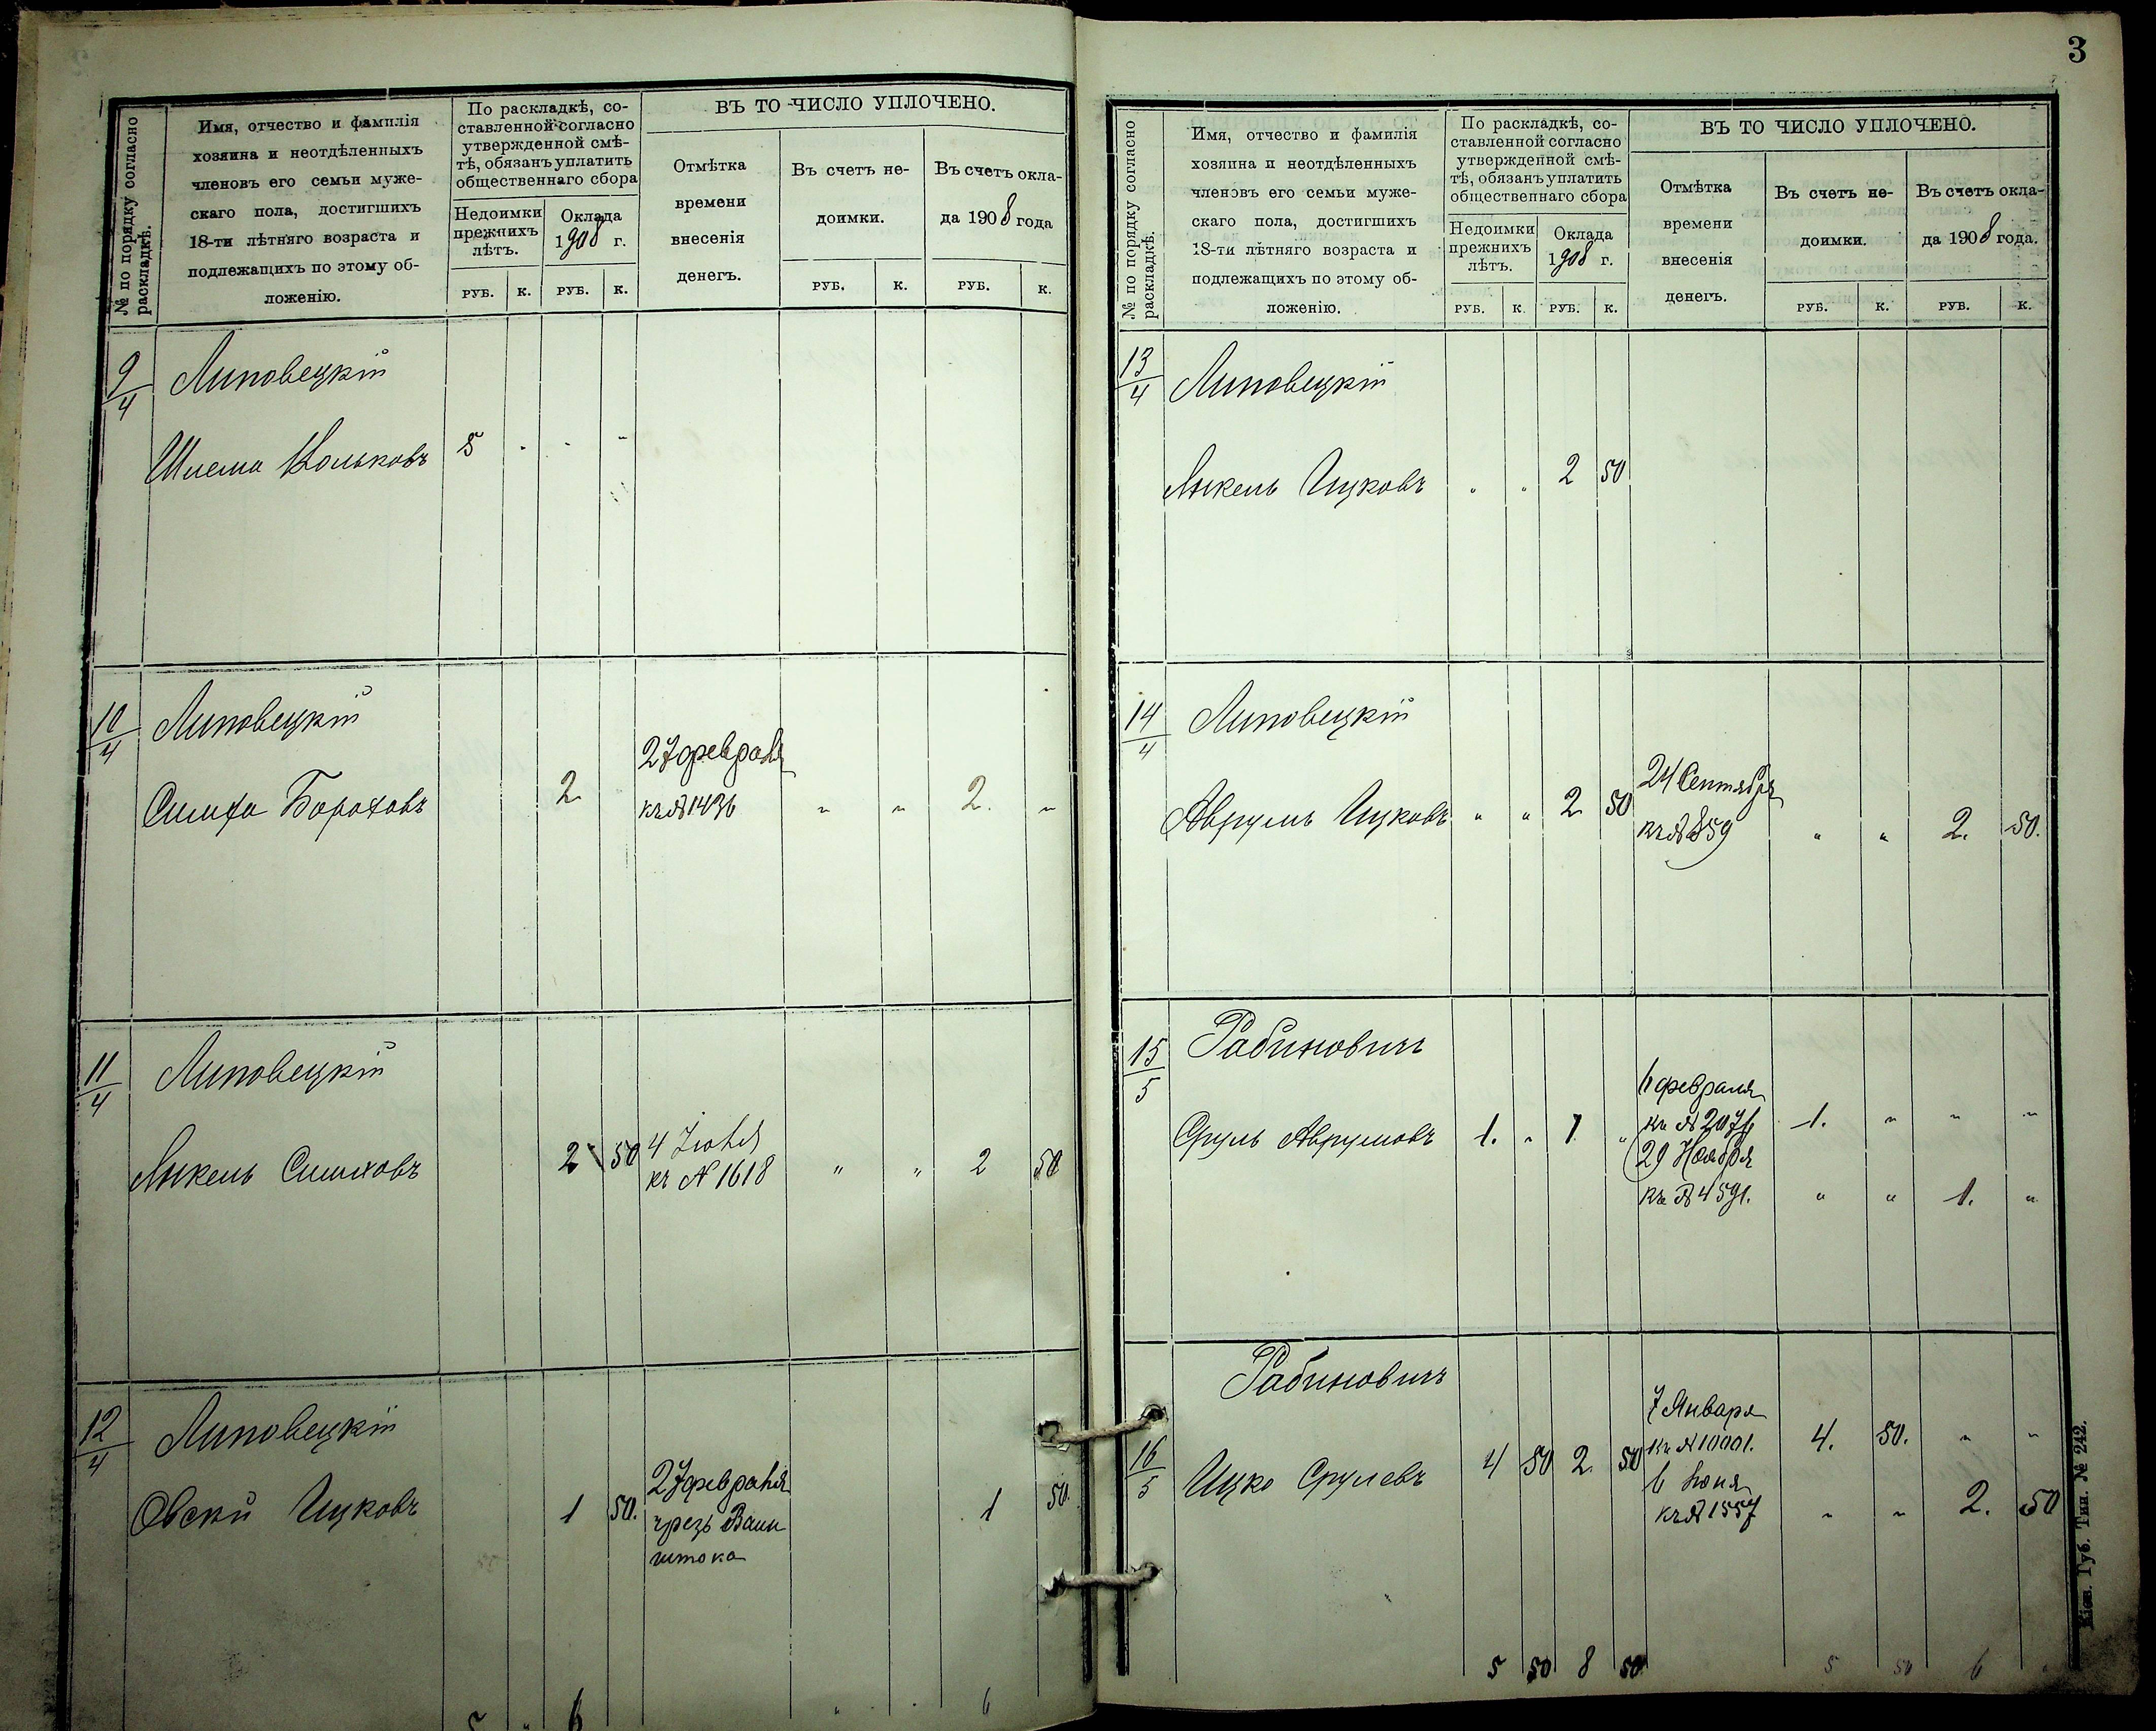 № по порядку согласно раскладкѣ.
Имя, отчество и фамилія
хозяина и неотдѣленныхъ
членовъ его семьи муже-
скаго пола, достигшихъ
18-ти лѣтняго возраста и
подлежащихъ по этому об-
ложенію.
По раскладкѣ, со-
ставленной согласно
утвержденной смѣ-
тѣ, обязанъ уплатить
общественнаго сбора
Недоимки
прежнихъ
лѣтъ.
Оклада
1908 г.
РУБ. К. РУБ. К.
ВЪ ТО ЧИСЛО УПЛОЧЕНО.
Отмѣтка
времени
внесенія
денегъ.
Въ счетъ не-
доимки.
Въ счетъ окла-
да 1908 года
РУБ. К. РУБ. К.
9/4 Липовецкій
Шлема Кольковъ 5 " " "
10/4 Липовецкій
27 февраля
Симха Бороховъ 2 къ № 1436 " " 2. "
11/4 Липовецкій
4 Іюня
Янкель Симховъ 2 50 къ № 1618 " " 2 50
12/4 Липовецкій
27 февраля
Овсей Ицковъ 1 50. чрезъ Ваин 1 50.
штока
5 " 6 " " 6
3
№ по порядку согласно раскладкѣ.
Имя, отчество и фамилія
хозяина и неотдѣленныхъ
членовъ его семьи муже-
скаго пола, достигшихъ
18-ти лѣтняго возраста и
подлежащихъ по этому об-
ложенію.
По раскладкѣ, со-
ставленной согласно
утвержденной смѣ-
тѣ, обязанъ уплатить
общественнаго сбора
Недоимки
прежнихъ
лѣтъ.
Оклада
1908 г.
РУБ. К. РУБ. К.
ВЪ ТО ЧИСЛО УПЛОЧЕНО.
Отмѣтка
времени
внесенія
денегъ.
Въ счетъ не-
доимки.
Въ счетъ окла-
да 1908 года.
РУБ. К. РУБ. К.
13/4 Липовецкій
Янкель Ицковъ " " 2 50
14/4 Липовецкій
24 Сентября
Аврумъ Ицковъ " " 2 50 къ № 859 " " 2. 50.
15/5 Рабиновичъ
6 февраля
Сруль Аврумовъ 1. " 1 " къ № 1. " " "
29 Ноября
къ № 4591. " " 1. "
16/5 Рабиновичъ
7 Января
Ицко Срулевъ 4 50 2 50 къ № 10001. 4. 50. " "
6 Іюня
къ № 1557 " " 2. 50
5 50 8 50 5 50 6
Кіев. Губ. Тип. № 242.